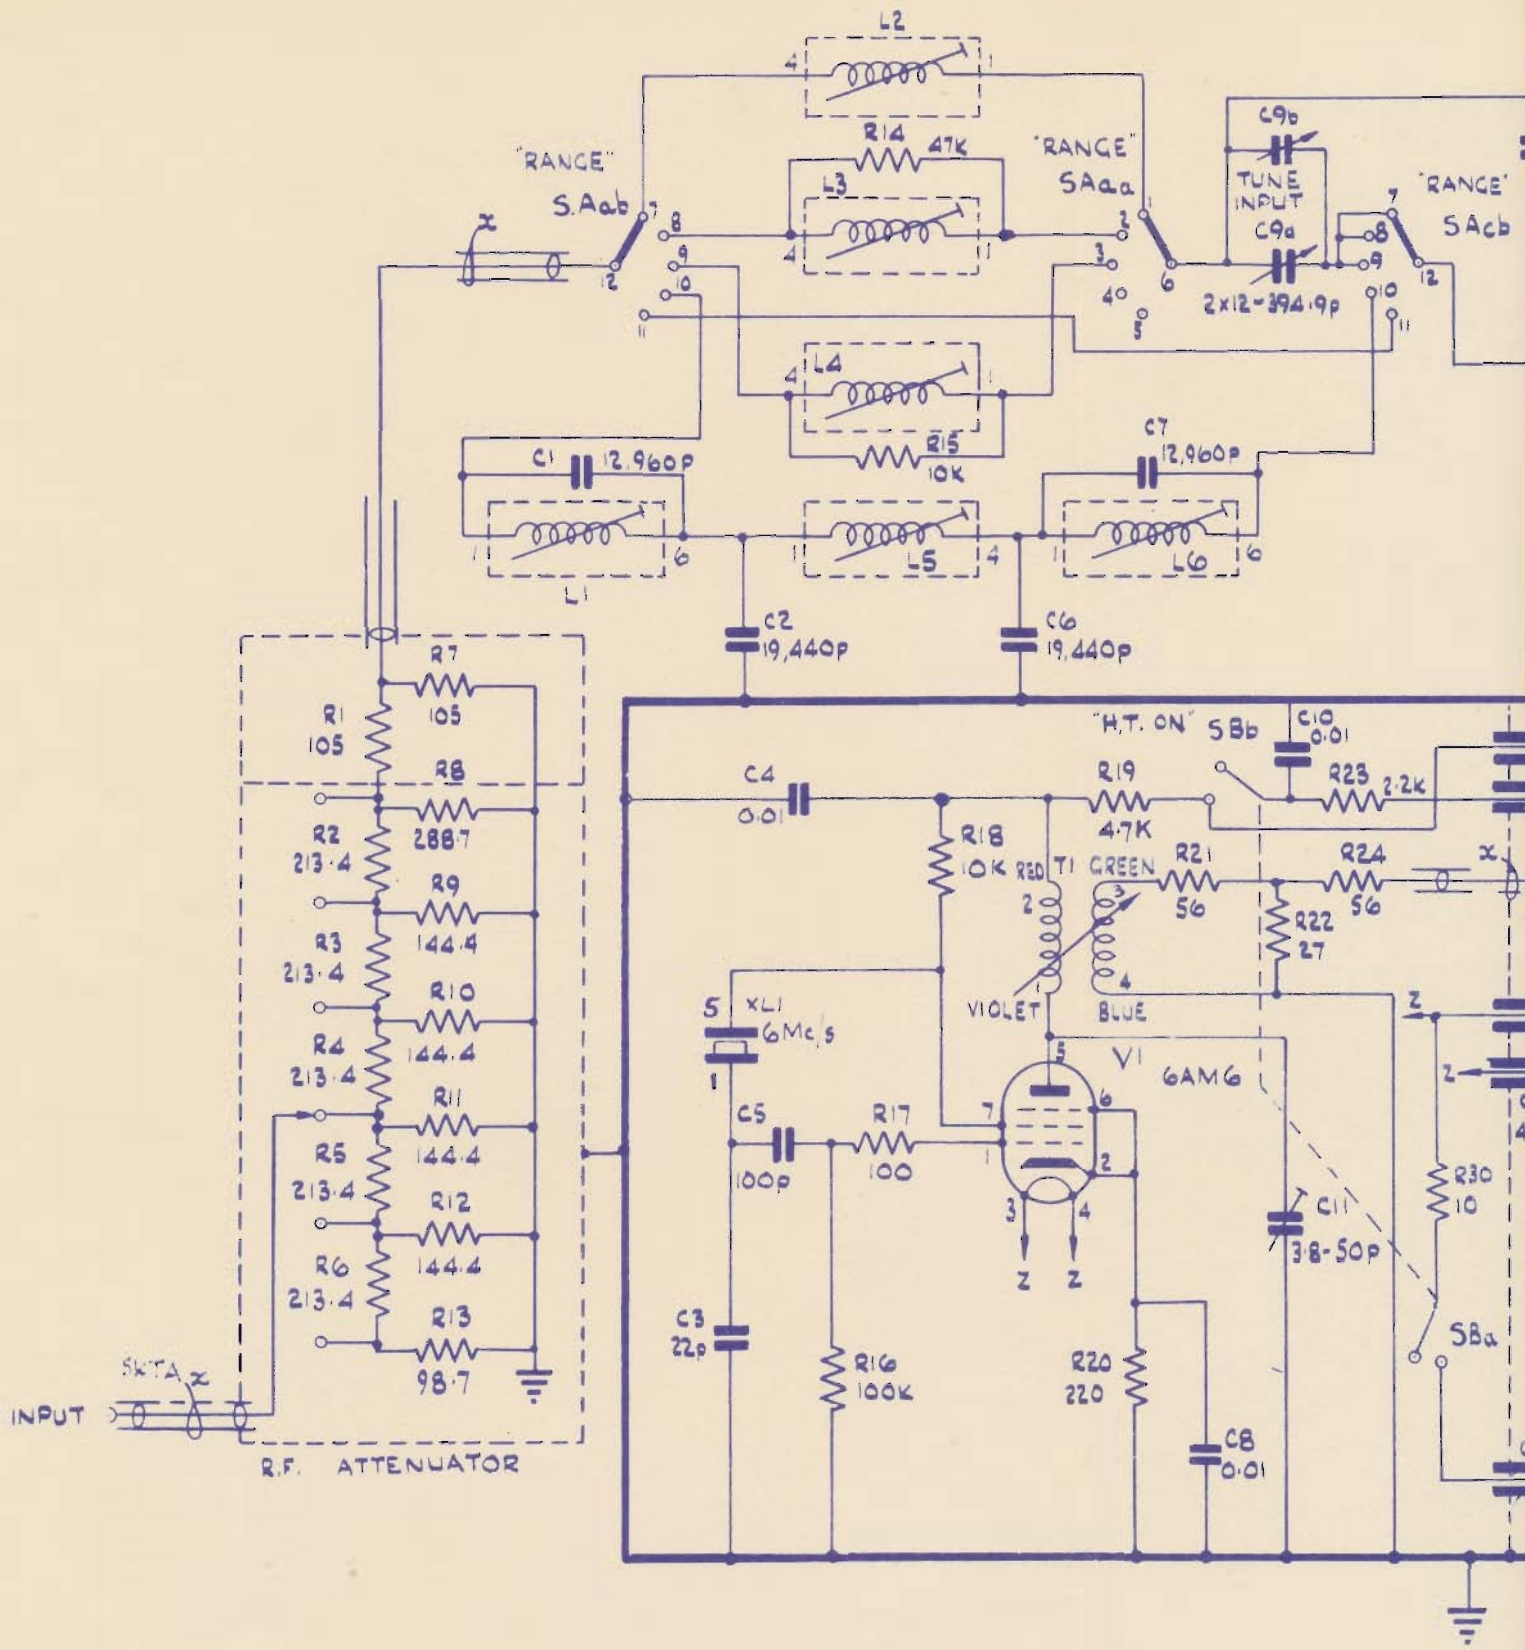 L2
4
1
R14
47K
"RANGE"
S.Aab
7
L3
8
4
1
9
12
10
11
x
"RANGE"
SAaa
1
2
3
4
5
6
C9b
TUNE
INPUT
C9a
2x12-394.9p
"RANGE"
SAcb
7
8
9
10
11
12
L4
4
1
R15
10K
C1
12,960p
1
6
L1
1
4
L5
C7
12,960p
1
6
L6
C2
19,440p
C6
19,440p
R7
105
R1
105
R8
288.7
R2
213.4
R9
144.4
R3
213.4
R10
144.4
R4
213.4
R11
144.4
R5
213.4
R12
144.4
R6
213.4
R13
98.7
SKTA
x
INPUT
R.F. ATTENUATOR
"H.T. ON"
SBb
C10
0.01
C4
0.01
R19
4.7K
R23
2.2K
R18
10K
RED
T1
GREEN
2
3
R21
56
R24
56
x
R22
27
1
4
VIOLET
BLUE
5
XL1
6Mc/s
1
5
V1
6AM6
7
6
1
2
3
4
Z
Z
Z
Z
C5
100p
R17
100
R30
10
C11
3.8-50p
C3
22p
R16
100K
R20
220
C8
0.01
SBa